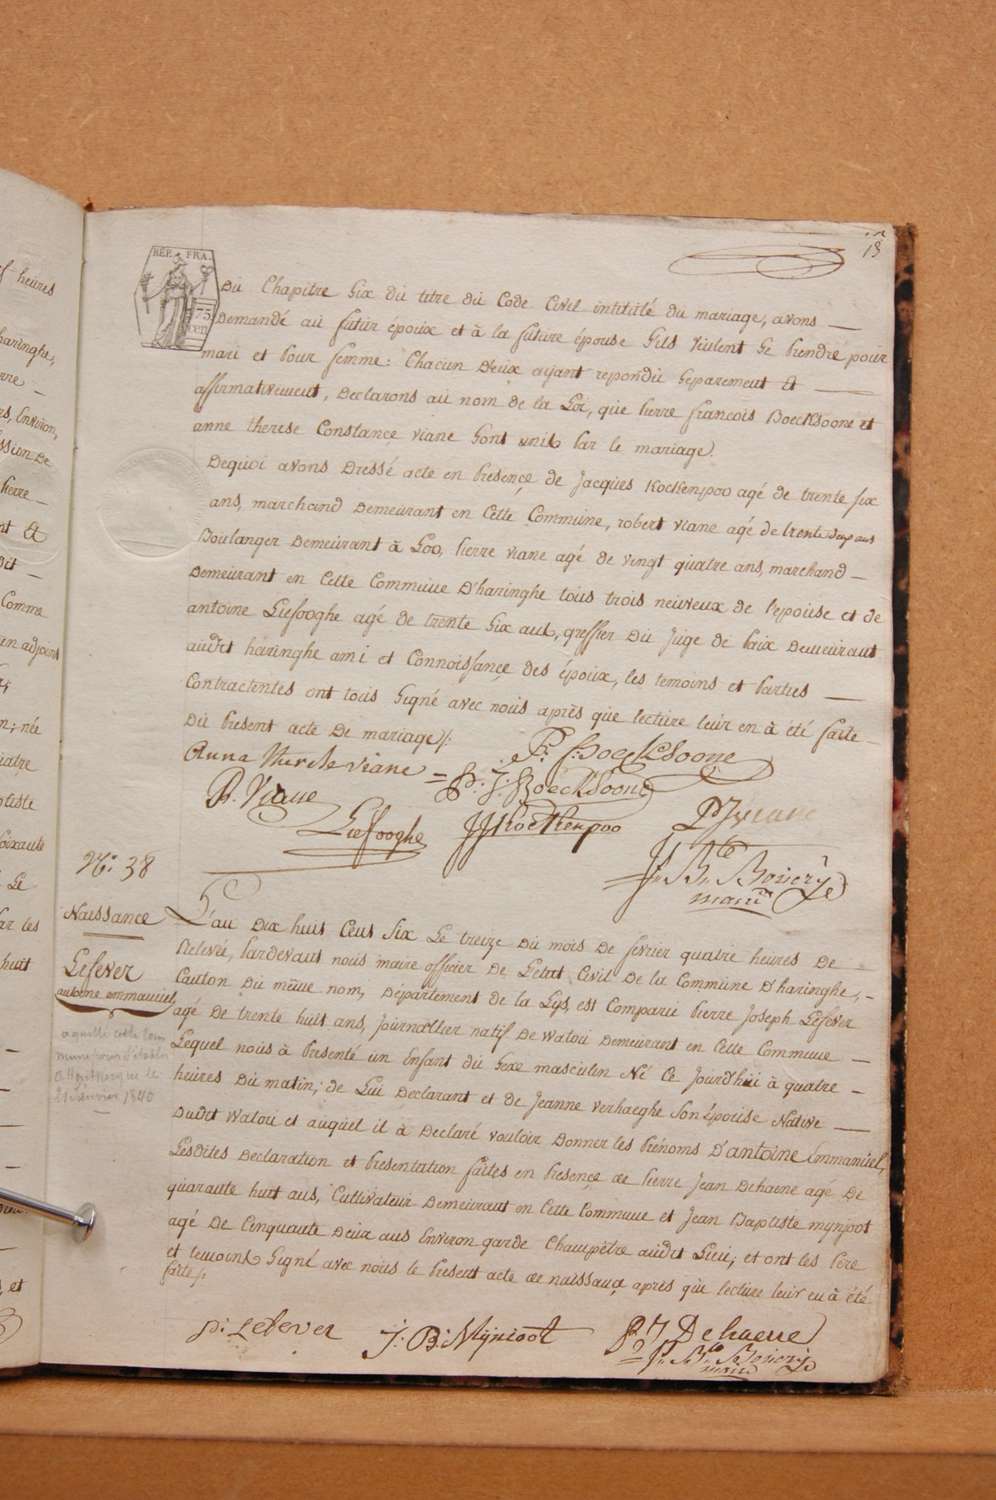 18
REP. FRA.
75
CEN
Du Chapitre Six du titre du Code Civil intitulé du mariage, avons
Demandé au futur époux et à la future épouse S'ils veulent Se prendre pour
mari et pour femme: Chacun D'eux ayant repondu Separement et
affirmativement, Declarons au nom de la Loi, que pierre francois Boecksoone et
anne therese Constance viane Sont unis par le mariage.
Dequoi avons Dressé acte en presence de Jacques Kockenpoo agé de trente six
ans, marchand Demeurant en Cette Commune, robert viane agé de trente deux ans
Boulanger Demeurant à Loo, pierre viane agé de vingt quatre ans, marchand
Demeurant en Cette Commune D'haringhe tous trois neuveux de l'epouse et de
antoine Liefooghe agé de trente Six ans, greffier Du Juge de paix Demeurant
audit haringhe ami et Connoissance des époux, les temoins et parties
Contractentes ont tous Signé avec nous après que lecture leur en à été faite
Du present acte De mariage.
Anna Therese viane = P. F. Boecksoone
P. J. Boecksoone
R. Viane
Liefooghe JJ Kockenpoo P J viane
maire
N.° 38
Naissance
Lefever
antoine emmanuel
L'an Dix huit Cens Six Le treize Du mois De fevrier quatre heures De
Relevée, pardevant nous maire officier De L'etat Civil De la Commune D'haringhe,
Canton Du même nom, Département de la Lys, est Comparu pierre Joseph Lefever
agé De trente huit ans, Journallier natif De Watou Demeurant en Cette Commune
Lequel nous à presenté un Enfant du Sexe masculin Né Ce Jourd'hui à quatre
heures Du matin; de Lui Declarant et de Jeanne verhaeghe Son épouse Native
Dudit Watou et auquel il à Declaré vouloir Donner les prénoms D'antoine Emmanuel,
Lesdites Declaration et presentation faites en presence de pierre Jean Dehaene agé De
quarante huit ans, Cultivateur Demeurant en Cette Commune et Jean Baptiste mynjoot
agé De Cinquante Deux ans Environ garde Champetre audit Lieu; et ont les père
et temoins Signé avec nous le present acte de naissance après que lecture leur en à été
faite.
a quitté cette com
mune pour s'établir
1840
p: Lefever J: B: Mynjoot P J Dehaene
maire